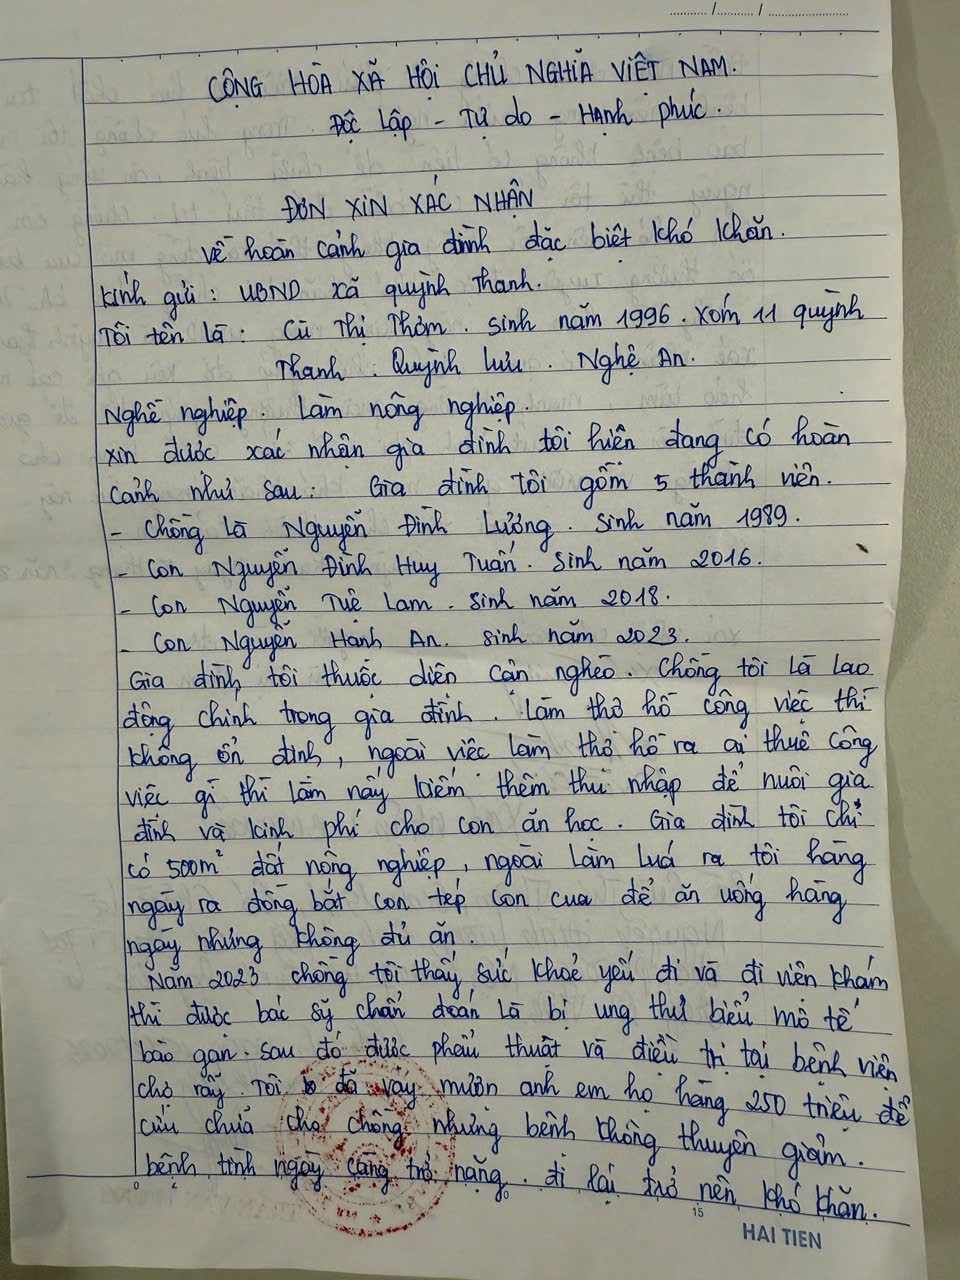 CỘNG HÒA XÃ HỘI CHỦ NGHĨA VIỆT NAM.
Độc lập - Tự do - Hạnh phúc.
ĐƠN XIN XÁC NHẬN
Về hoàn cảnh gia đình đặc biệt khó khăn.
Kính gửi: UBND xã quỳnh Thanh.
Tôi tên là: Cù Thị Thơm. sinh năm 1996. xóm 11 quỳnh
Thanh. Quỳnh Lưu. Nghệ An.
Nghề nghiệp. Làm nông nghiệp.
xin được xác nhận gia đình tôi hiện đang có hoàn
cảnh như sau: Gia đình tôi gồm 5 thành viên.
- Chồng là Nguyễn Đình Lương. sinh năm 1989.
- Con Nguyễn Đình Huy Tuấn. sinh năm 2016.
- Con Nguyễn Tuệ Lam. sinh năm 2018.
- Con Nguyễn Hạnh An. sinh năm 2023.
Gia đình tôi thuộc diện cận nghèo. Chồng tôi là lao
động chính trong gia đình. Làm thợ hồ công việc thì
không ổn định, ngoài việc làm thợ hồ ra ai thuê công
việc gì thì làm nấy kiếm thêm thu nhập để nuôi gia
đình và kinh phí cho con ăn học. Gia đình tôi chỉ
có 500m² đất nông nghiệp, ngoài làm luá ra tôi hàng
ngày ra đồng bắt con tép con cua để ăn uống hàng
ngày nhưng không đủ ăn.
Năm 2023 chồng tôi thấy sức khoẻ yếu đi và đi viện khám
thì được bác sỹ chẩn đoán là bị ung thư biểu mô tế
bào gan. sau đó được phẩu thuật và điều trị tại bệnh viện
chợ rẫy. Tôi đã vay mượn anh em họ hàng 250 triệu để
cứu chưã cho chồng nhưng bệnh không thuyên giảm.
bệnh tình ngày càng trở nặng. đi lại trở nên khó khăn.
15
HAI TIEN